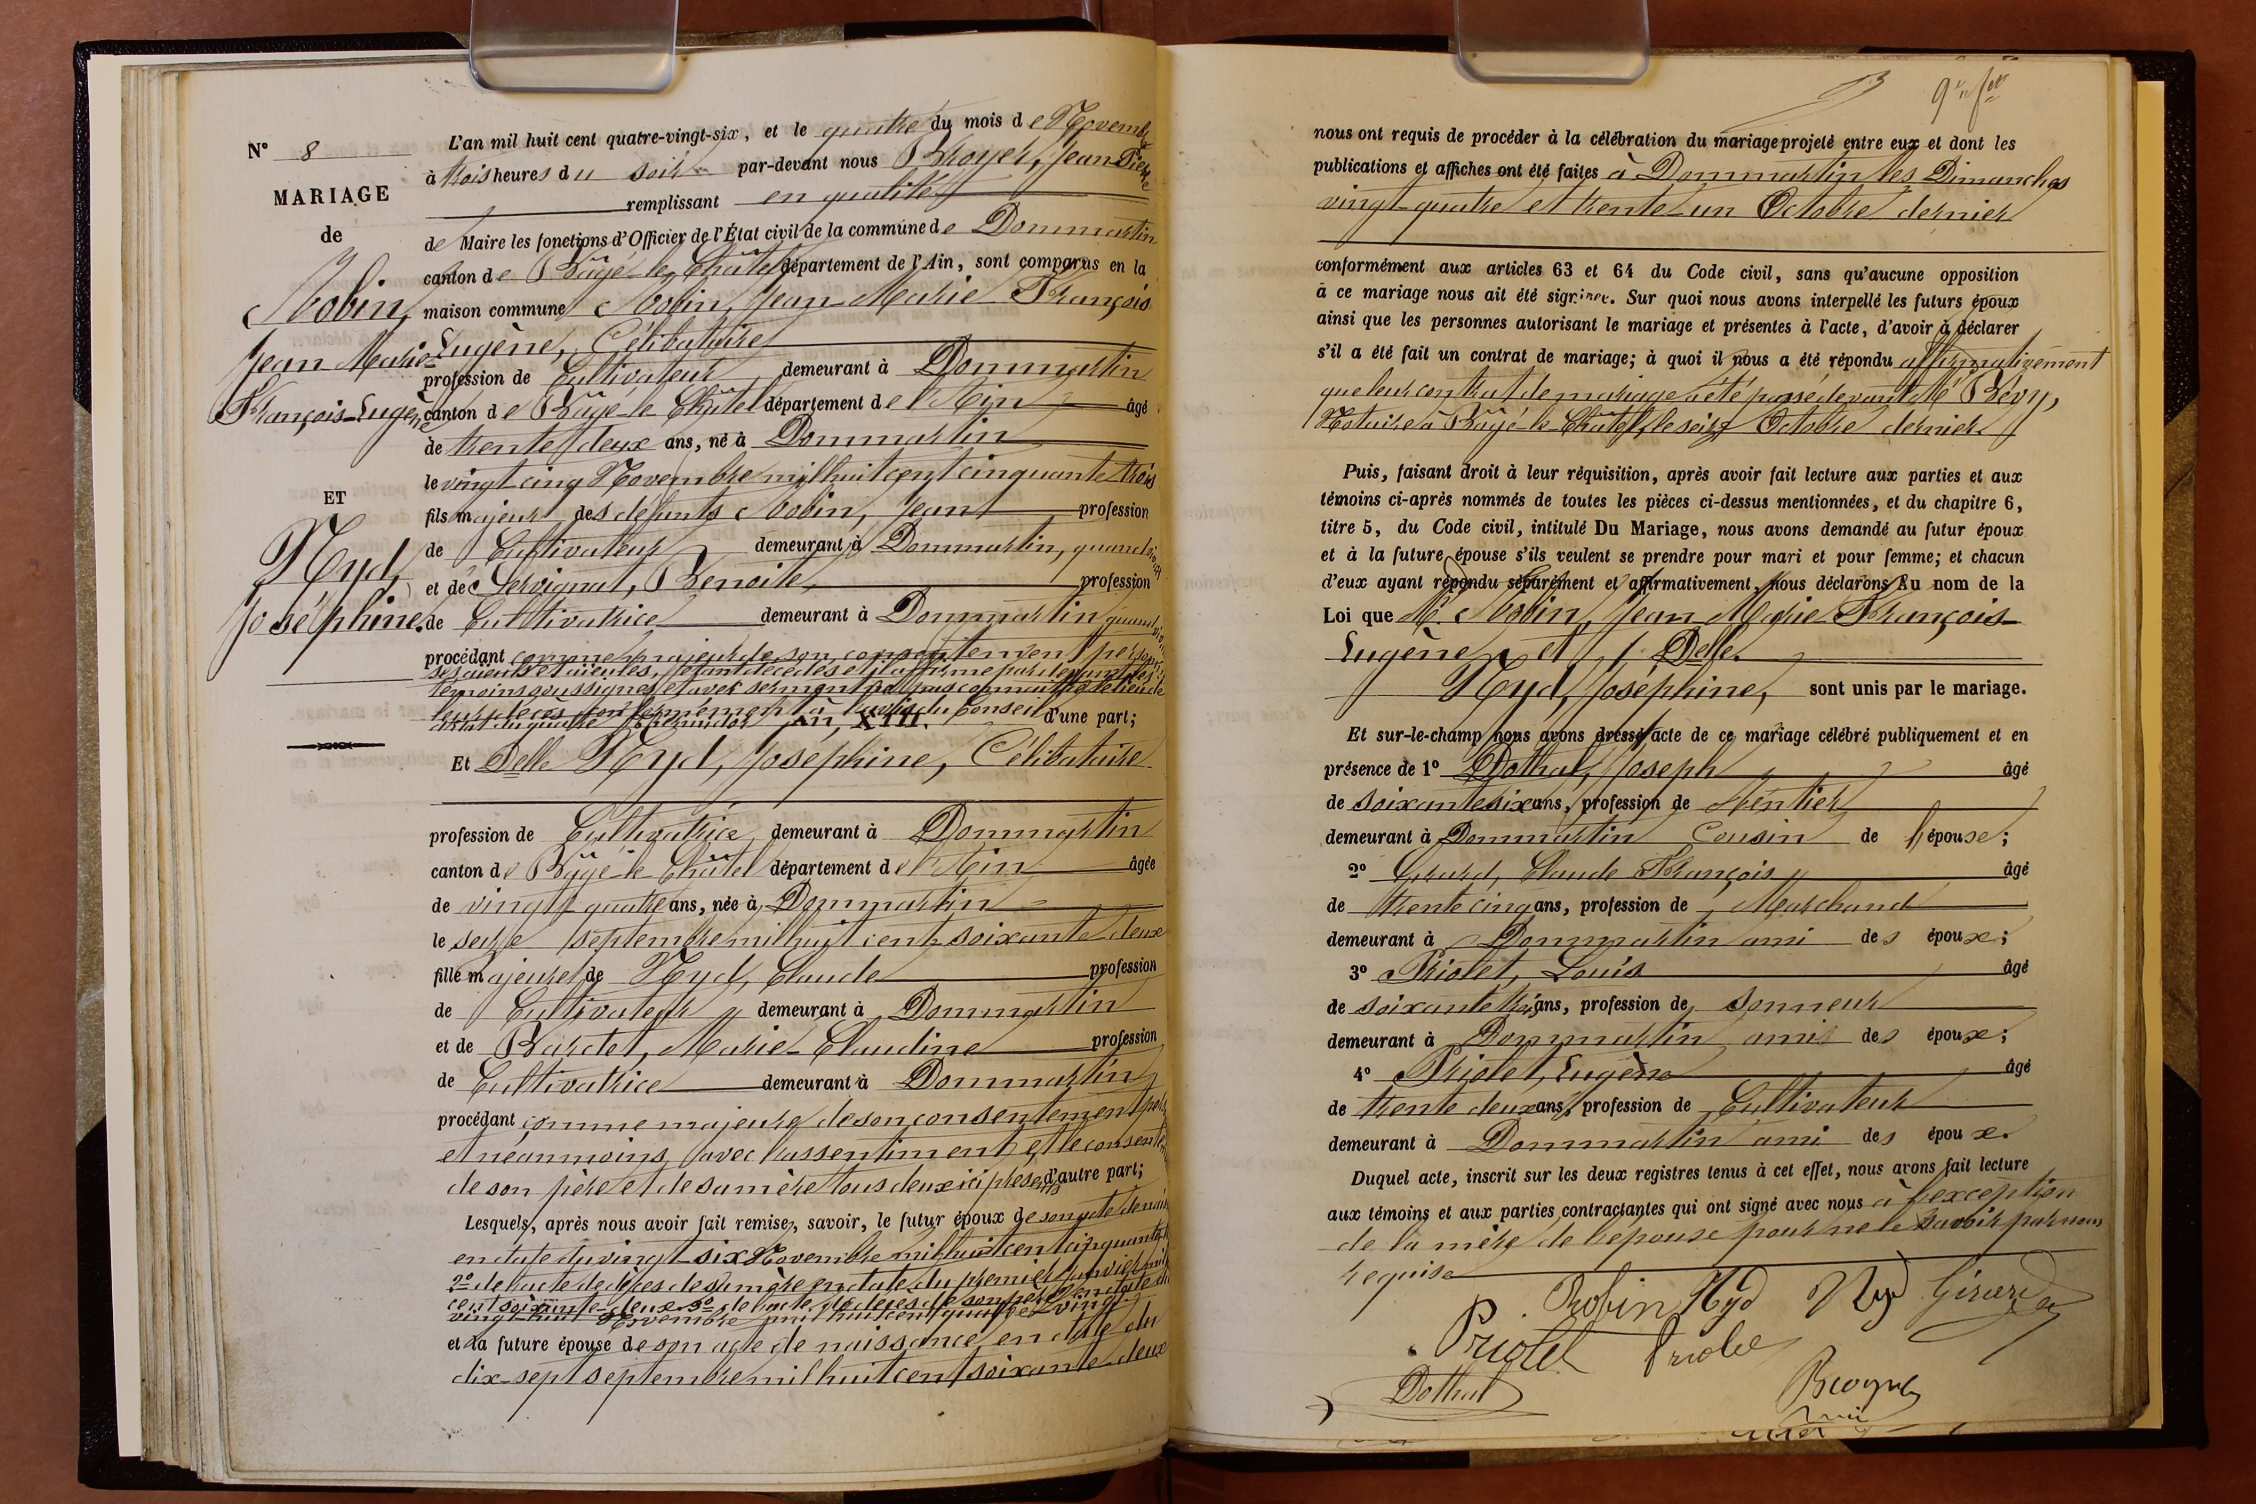 N° 8
MARIAGE
de
Robin,
Jean Marie
François-Eugène
ET
Nyd,
Joséphine.
L'an mil huit cent quatre-vingt-six, et le quatre du mois de Novembre
à trois heures du soir par-devant nous Broyer, Jean Pierre
remplissant en qualité
de Maire les fonctions d'Officier de l'État civil de la commune de Dommartin
canton de Bâgé-le-Châtel département de l'Ain, sont comparus en la
maison commune Robin, Jean-Marie François
Eugène, Célibataire
profession de Cultivateur demeurant à Dommartin
canton de Bâgé-le-Châtel département de l'Ain âgé
de trente deux ans, né à Dommartin
le vingt cinq Novembre mil huit cent cinquante trois
fils majeur des défunts Robin, Jean profession
de Cultivateur demeurant à Dommartin, quand vivait
et de Servignat, Benoite, profession
de Cultivatrice demeurant à Dommartin quand
procédant comme majeur de son consentement
ses aïeuls et aïeules, étant décédés et il affirme par devant les
témoins soussignés et avec serment ne pas connaître le lieu de
leur décès conformément à l'avis du Conseil d'une part;
d'état du quatre thermidor An, XIII.
Et Delle Nyd, Joséphine, Célibataire
profession de Cultivatrice demeurant à Dommartin
canton de Bâgé-le-Châtel département de l'Ain âgée
de vingt-quatre ans, née à Dommartin
le seize septembre mil huit cent soixante deux
fille majeure de Nyd, Claude profession
de Cultivateur demeurant à Dommartin
et de Bardet, Marie-Claudine profession
de Cultivatrice demeurant à Dommartin
procédant comme majeure de son consentement
et néanmoins avec l'assentiment et le consentement
de son père et de sa mère tous deux ici présents d'autre part;
Lesquels, après nous avoir fait remise, savoir, le futur époux de son acte de naissance
en date du vingt-six Novembre mil huit cent cinquante
2° de l'acte de décès de sa mère en date du premier Janvier mil
cent soixante-deux 3° de l'acte de décès de son père en date du
vingt huit Novembre mil huit cent quatre vingt
et la future épouse de son acte de naissance en date du
dix-sept septembre mil huit cent soixante deux
nous ont requis de procéder à la célébration du mariage projeté entre eux et dont les
publications et affiches ont été faites à Dommartin les Dimanches
vingt-quatre et trente-un Octobre dernier
conformément aux articles 63 et 64 du Code civil, sans qu'aucune opposition
à ce mariage nous ait été signifiée. Sur quoi nous avons interpellé les futurs époux
ainsi que les personnes autorisant le mariage et présentes à l'acte, d'avoir à déclarer
s'il a été fait un contrat de mariage; à quoi il nous a été répondu affirmativement
que leur contrat de mariage a été passé devant Me Révy,
Notaire à Bâgé-le-Châtel, le seize Octobre dernier
Puis, faisant droit à leur réquisition, après avoir fait lecture aux parties et aux
témoins ci-après nommés de toutes les pièces ci-dessus mentionnées, et du chapitre 6,
titre 5, du Code civil, intitulé Du Mariage, nous avons demandé au futur époux
et à la future épouse s'ils veulent se prendre pour mari et pour femme; et chacun
d'eux ayant répondu séparément et affirmativement, nous déclarons Au nom de la
Loi que Mr Robin, Jean Marie François-
Eugène et Delle
Nyd, Joséphine, sont unis par le mariage.
Et sur-le-champ nous avons dressé acte de ce mariage célébré publiquement et en
présence de 1° Dothal, Joseph âgé
de soixante six ans, profession de Rentier
demeurant à Dommartin Cousin de l'épouse;
2° Girard, Claude François âgé
de trente cinq ans, profession de Marchand
demeurant à Dommartin ami des époux;
3° Priolet, Louis âgé
de soixante trois ans, profession de sonneur
demeurant à Dommartin ami des époux;
4° Priolet, Eugène âgé
de trente deux ans, profession de Cultivateur
demeurant à Dommartin ami des époux.
Duquel acte, inscrit sur les deux registres tenus à cet effet, nous avons fait lecture
aux témoins et aux parties contractantes qui ont signé avec nous à l'exception
de la mère de l'épouse pour ne le savoir par nous
requise
Robin Nyd Nyd Girard
Priolet Priolet
Dothal Broyer